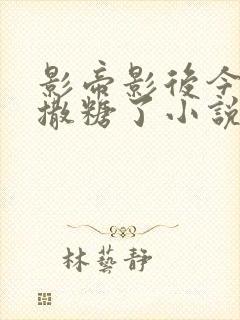 影帝影後今
撒糖了小說
林藝靜